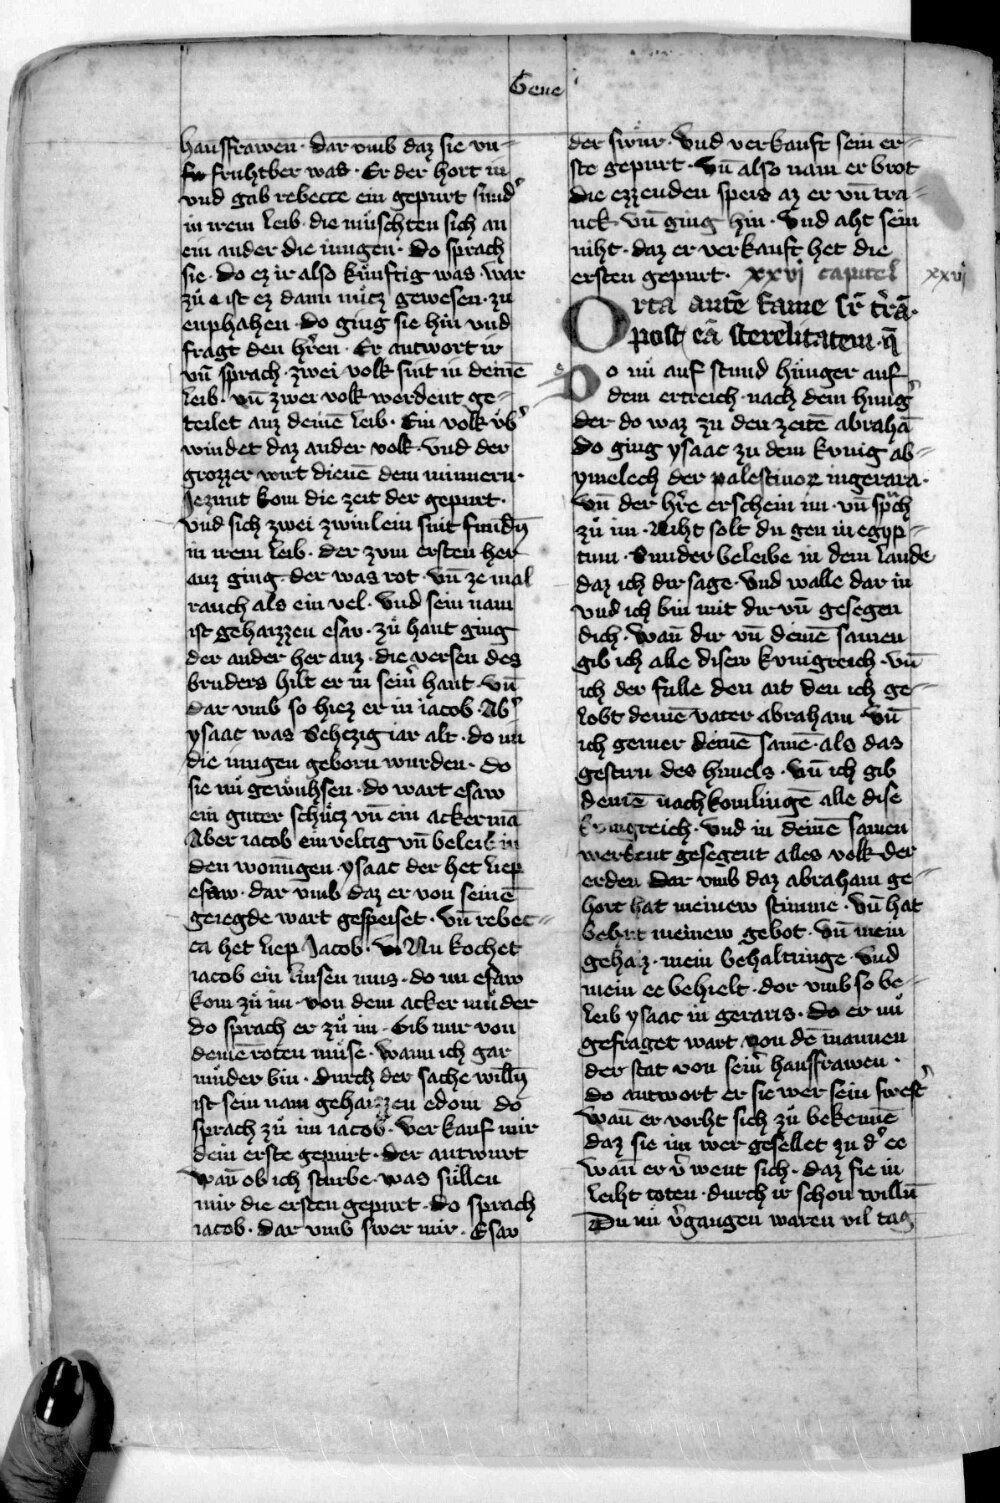 Gene
hausfrawen · dar vmb daz sie vn=
fruhtber was · Er der hort in
vnd gab rebecce ein gepurt sund᾽
in irem leib · die muͤschten sich an
ein ander die iungen · do sprach
sie · do ez ir also kuͤnftig was · war
zuͦ ist ez dann nuͤcz gewesen · zu
enphahen · do ging sie hin vnd
fragt den hr̄en · Er antwort ir
vn̄ sprach · zwei volk sint in deinē
leib · vn̄ zwei volk werdent ge=
teilet auz deinē leib · Ein volk uͤb᾽
windet daz ander volk · vnd der
grozzer wirt dienē dem minnern ·
Jezunt kom die zeit der gepurt ·
vnd sich zwei zwinlein sint fundn̄
in irem leib · der zum ersten her
auz ging · der was rot · vn̄ ze mal
rauch als ein vel · Vnd sein nam
ist gehaizzen esav · zuͦ hant ging
der ander her auz · die versen des
bruders hilt er in sein᾽ hant · vn̄
dar vmb so hiez er in iacob · Ab᾽
ysaac was Sehczig iar alt · do im
die iungen geborn wurden · do
sie nu gewuͤhsen · do wart esaw
ein guter schuͤcz vn̄ ein ackermā
Aber iacob einveltig vn̄ beleib in
den wonūgen · ysaac der het liep
esaw · dar vmb daz er von seinē
geiegde wart gespeiset · vn̄ rebec=
ca het liep Jacob · Nu kochet
iacob ein linsen mus · do nu esaw
kom zuͦ im · von dem acker muͤder
do sprach er zuͦ im · Gib mir von
deinē roten muͤse · wann ich gar
muͤder bin · durch der sache willn̄
ist sein nam gehaizzen edom do
sprach zuͦ im iacob · verkauf mir
dein erste gepurt · der antwurt
wan̄ ob ich sturbe · was suͤllen
mir die ersten gepurt · do sprach
iacob · dar vmb swer mir · Esav
der swur · Vnd verkauft sein er=
ste gepurt · Vn̄ also nam er brot
die ezzenden speis az er vn̄ tra=
nck · vn̄ ging hin · Vnd aht sein
niht · daz er verkauft het die
ersten gepurt · xxvj capitel
xxvj
Orta autē fame sr̄ tr̄ā ·
post eā sterelitatem · q̄
Do nu auf stund huͤnger auf
dem ertreich · nach dem hung᾽
der do waz zu den zeitē abrahā
do ging ysaac zu dem kvnig ab=
ymelech der palestinoꝝ ingerara ·
vn̄ der hr̄e erschein im · vn̄ spͣch
zuͦ im · Niht solt du gen in egyp=
tum · Sunder beleibe in dem lande
daz ich dir sage · Vnd walle dar in
vnd ich bin mit dir vn̄ gesegen
dich · Wan̄ dir vn̄ deinē samen
gib ich alle disew kvnigreich · vn̄
ich der fulle den ait den ich ge=
lobt deinē vater abraham · vn̄
ich gemer deinē samē · als das
gestirn des himels · Vn̄ ich gib
deinē nachkomlingē alle dise
kvnigreich · vnd in deinē samen
werdent gesegent alles volk der
erden dar vmb daz abraham ge=
hort hat meinew stimme · vn̄ hat
behut meinew gebot · vn̄ mein
gehaiz · mein behaltunge · vnd
mein ee behielt · dor vmb so be=
leib ysaac in geraris · do er nu
gefraget wart von dē mannen
der stat von sein᾽ hausfrawen ·
do antwort er sie wer sein swest᾽
wan̄ er vorht sich zuͦ bekennē
daz sie im wer gesellet zu d᾽ ee
wan̄ er v᾽went sich · daz sie in
leiht toten · durch ir schon willn̄
Du nu v᾽gangen waren vil tag